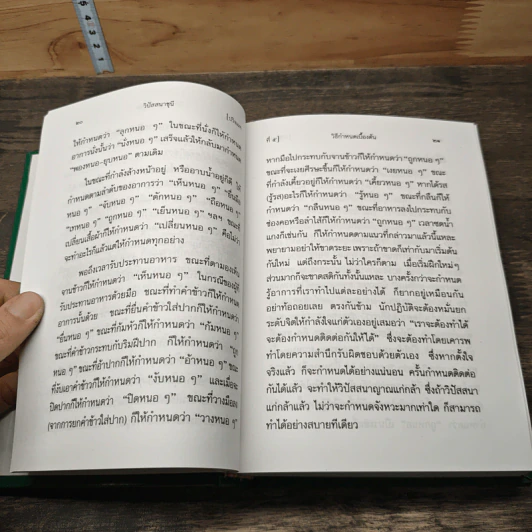 ๒๐ วิปัสสนาชุนี [ปริเฉท
ให้กำหนดว่า “ลุกหนอ ๆ” ในขณะที่นั่งก็ให้กำหนด
อาการนั่งนั้นว่า “นั่งหนอ ๆ” เสร็จแล้วให้กลับมากำหนด
“พองหนอ-ยุบหนอ” ตามเดิม
ในขณะที่กำลังล้างหน้าอยู่ หรืออาบน้ำอยู่ก็ดี
กำหนดตามลำดับของอาการว่า “เห็นหนอ ๆ” “ยื่นหนอ
ๆ” “จับหนอ ๆ” “ตักหนอ ๆ” “ถือหนอ ๆ”
“เทหนอ ๆ” “ถูกหนอ ๆ” “เย็นหนอ ๆ” ฯลฯ ขณะที่
เปลี่ยนเสื้อผ้าก็ให้กำหนดว่า “เปลี่ยนหนอ ๆ” คือไม่ว่า
จะทำอะไรก็แล้วแต่ให้กำหนดทุกอย่าง
พอถึงเวลารับประทานอาหาร ขณะที่ตามองเห็น
จานข้าวก็ให้กำหนดว่า “เห็นหนอ ๆ” ในกรณีของผู้ที่
รับประทานอาหารด้วยมือ ขณะที่ทำคำข้าวก็ให้กำหนด
อาการนั้นด้วย ขณะที่ยื่นคำข้าวใส่ปากก็ให้กำหนดว่า
“ยื่นหนอ ๆ” ขณะที่ก้มหัวก็ให้กำหนดว่า “ก้มหนอ ๆ”
ขณะที่คำข้าวกระทบกับริมฝีปาก ก็ให้กำหนดว่า “ถูก
หนอ ๆ” ขณะที่อ้าปากก็ให้กำหนดว่า “อ้าหนอ ๆ” ขณะ
ที่งับเอาคำข้าวก็ให้กำหนดว่า “งับหนอ ๆ” และเมื่อ
ปิดปากก็ให้กำหนดว่า “ปิดหนอ ๆ” ขณะที่วางมือลง
(จากการยกคำข้าวใส่ปาก) ก็ให้กำหนดว่า “วางหนอ ๆ”
ที่ ๕] วิธีกำหนดเบื้องต้น ๒๑
หากมือไปกระทบกับจานข้าวก็ให้กำหนดว่า “ถูกหนอ ๆ”
ขณะที่จะเงยศีรษะขึ้นก็ให้กำหนดว่า “เงยหนอ ๆ” ขณะ
ที่กำลังเคี้ยวอยู่ก็ให้กำหนดว่า “เคี้ยวหนอ ๆ” หากได้รส
(รู้รส)อะไรก็ให้กำหนดว่า “รู้หนอ ๆ” ขณะที่กลืนก็ให้
กำหนดว่า “กลืนหนอ ๆ” ขณะที่อาหารลงไปกระทบกับ
ช่องคอหรือลำไส้ก็ให้กำหนดว่า “ถูกหนอ ๆ” เวลาซดน้ำ
แกงก็เช่นกัน ก็ให้กำหนดตามแนวที่กล่าวมาแล้วนี้แหละ
พยายามอย่าให้ขาดระยะ เพราะถ้าขาดก็เท่ากับมาเริ่มต้น
กันใหม่ แต่ถึงกระนั้น ไม่ว่าใครก็ตาม เมื่อเริ่มฝึกใหม่ๆ
ส่วนมากก็จะขาดสติกันทั้งนั้นแหละ บางครั้งกว่าจะกำหนด
รู้อาการที่เราทำไปแต่ละอย่างได้ ก็ยากอยู่เหมือนกัน
อย่าท้อถอยเลย ตรงกันข้าม นักปฏิบัติจะต้องหมั่นยก
ระดับจิตให้กำลังใจแก่ตัวเองอยู่เสมอว่า “เราจะต้องทำได้
จะต้องกำหนดติดต่อกันให้ได้” ซึ่งจะต้องทำโดยเคารพ
ทำโดยความสำนึกรับผิดชอบด้วยตัวเอง ซึ่งหากตั้งใจ
จริงแล้ว ก็จะกำหนดได้อย่างแน่นอน ครั้นกำหนดติดต่อ
กันได้แล้ว จะทำให้วิปัสสนาญาณแก่กล้า ซึ่งถ้าวิปัสสนา
แก่กล้าแล้ว ไม่ว่าจะกำหนดจังหวะมากเท่าใด ก็สามารถ
ทำได้อย่างสบายทีเดียว